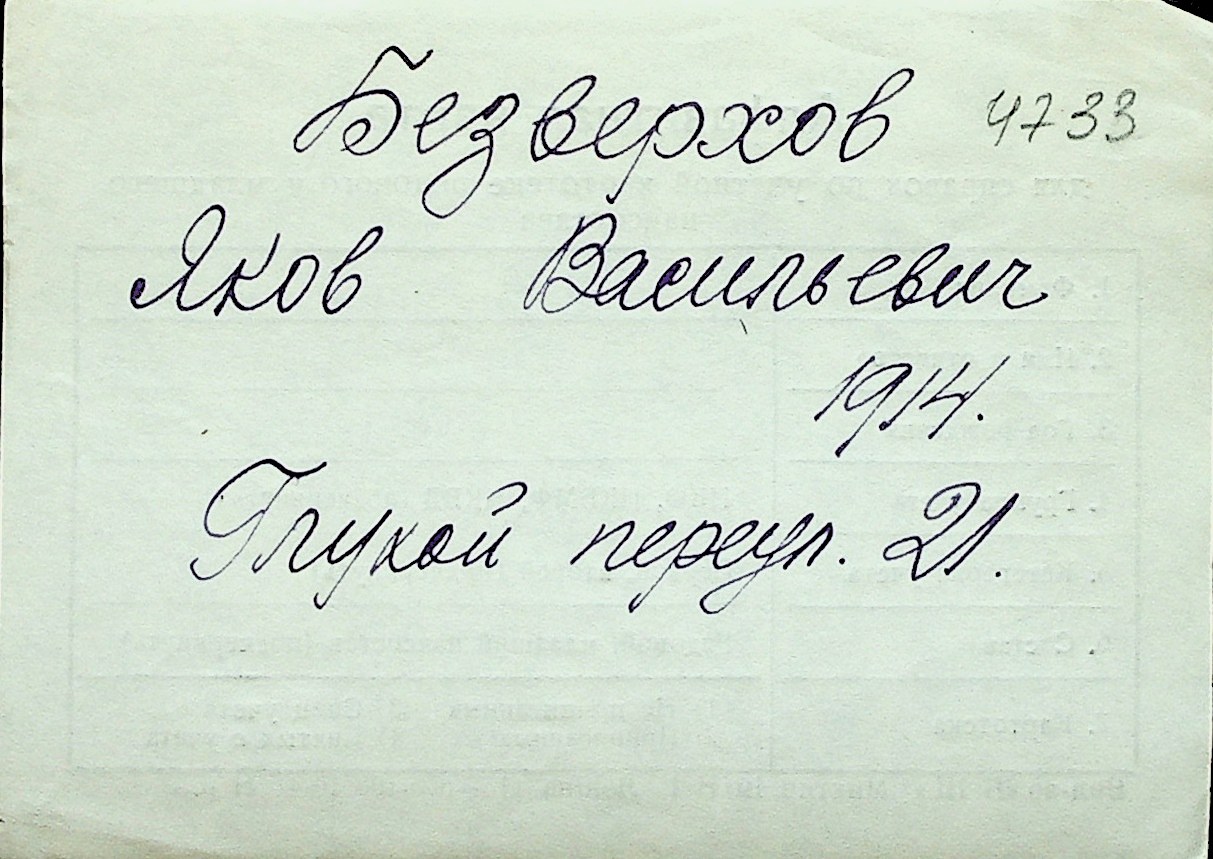 Безверхов 4733
Яков Васильевич
1914.
Глухой переул. 21.